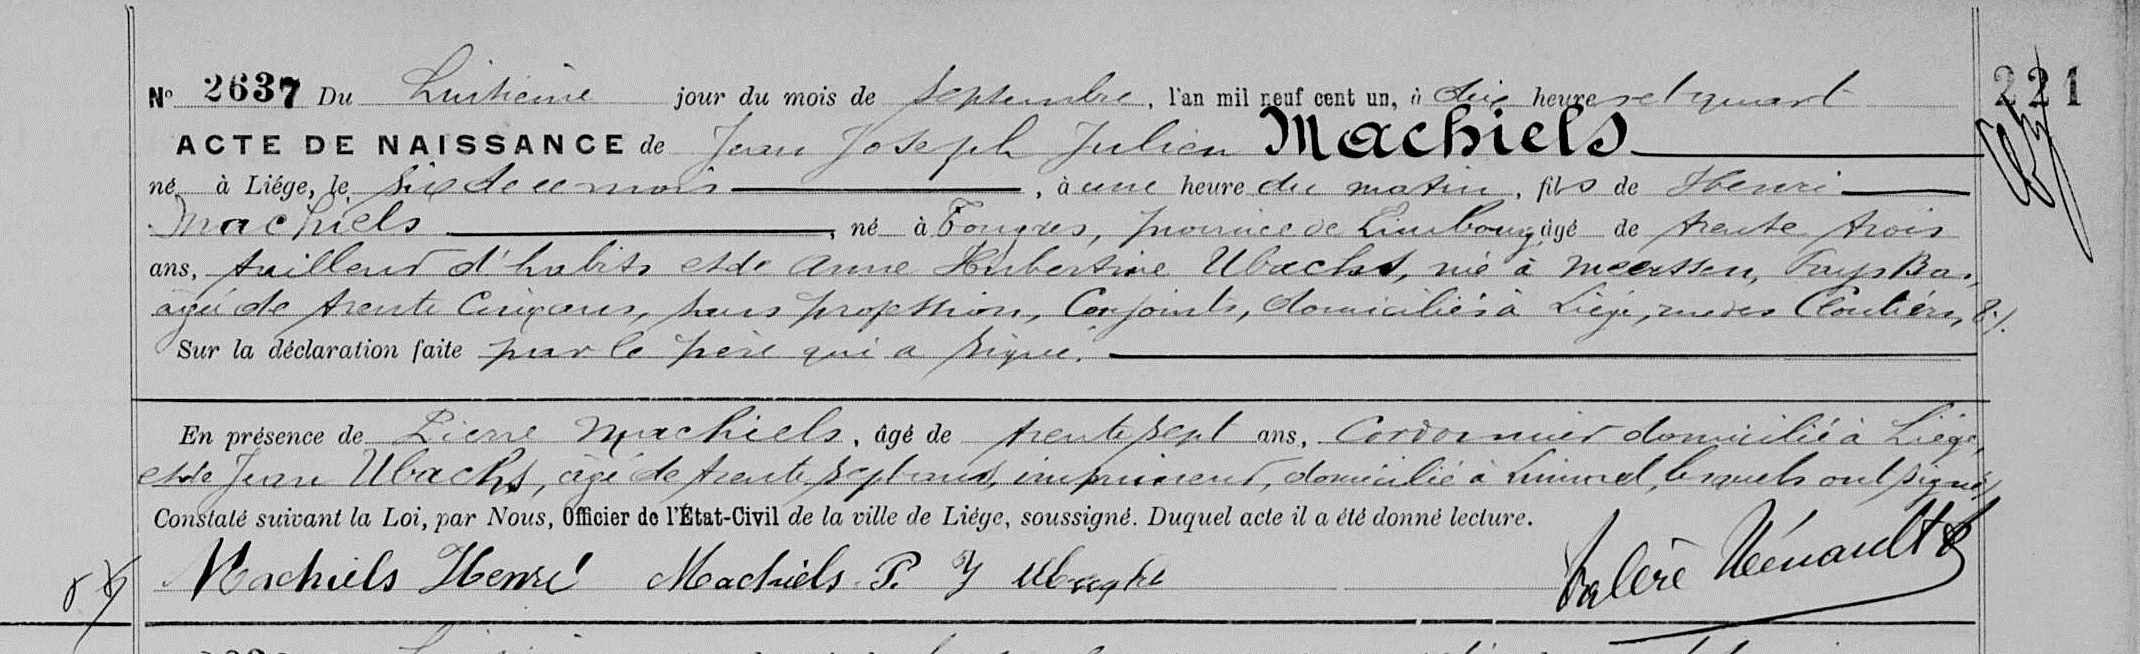 N° 2637 Du huitième jour du mois de Septembre, l'an mil neuf cent un, à dix heures et quart 221
ACTE DE NAISSANCE de Jean Joseph Julien Machiels
né à Liége, le six de ce mois, à une heure du matin, fils de Henri
Machiels, né à Tongres, province de Limbourg, âgé de trente trois
ans, tailleur d'habits et de Anne Hubertine Ubachs, née à Meerssen, Pays Bas,
âgée de trente cinq ans, sans profession, Conjoints, domiciliés à Liége, rue des Cloutiers, 8/.
Sur la déclaration faite par le père qui a signé.
En présence de Pierre Machiels, âgé de trente sept ans, Cordonnier domicilié à Liége,
et de Jean Ubachs, âgé de trente sept ans, imprimeur, domicilié à lesquels ont signé
Constaté suivant la Loi, par Nous, Officier de l'État-Civil de la ville de Liége, soussigné. Duquel acte il a été donné lecture.
Machiels Henri Machiels P. J Ubaghs Valère Hénault